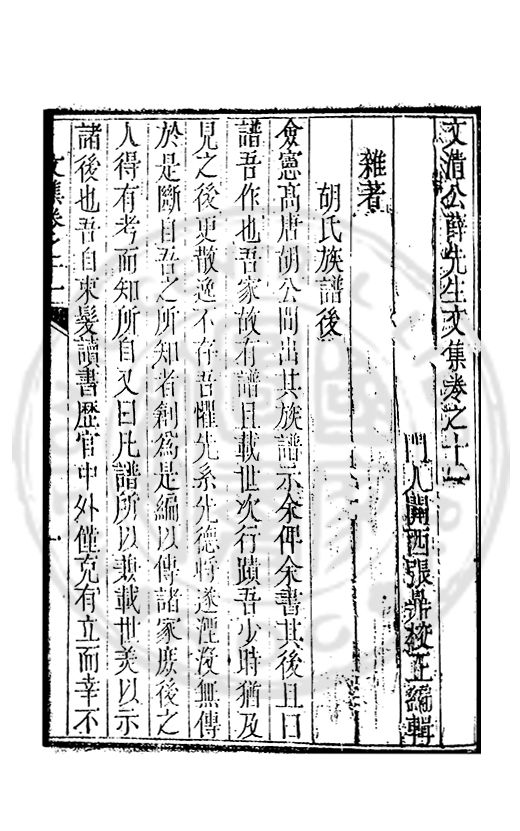 文清公薛先生文集卷之十一
門人關西張鼎校正編輯
雜著
胡氏族譜後
僉憲髙唐胡公間出其族譜示余俾余書其後且曰
譜吾作也吾家故有譜且載世次行蹟吾少時猶及
見之後更散逸不存吾懼先系先德將遂湮沒無傳
於是斷自吾之所知者創為是編以傳諸家庶後之
人得有考而知所自又曰凡譜所以兼載世美以示
諸後也吾自束髮讀書歷官中外僅克有立而幸不
文集卷之十一
一